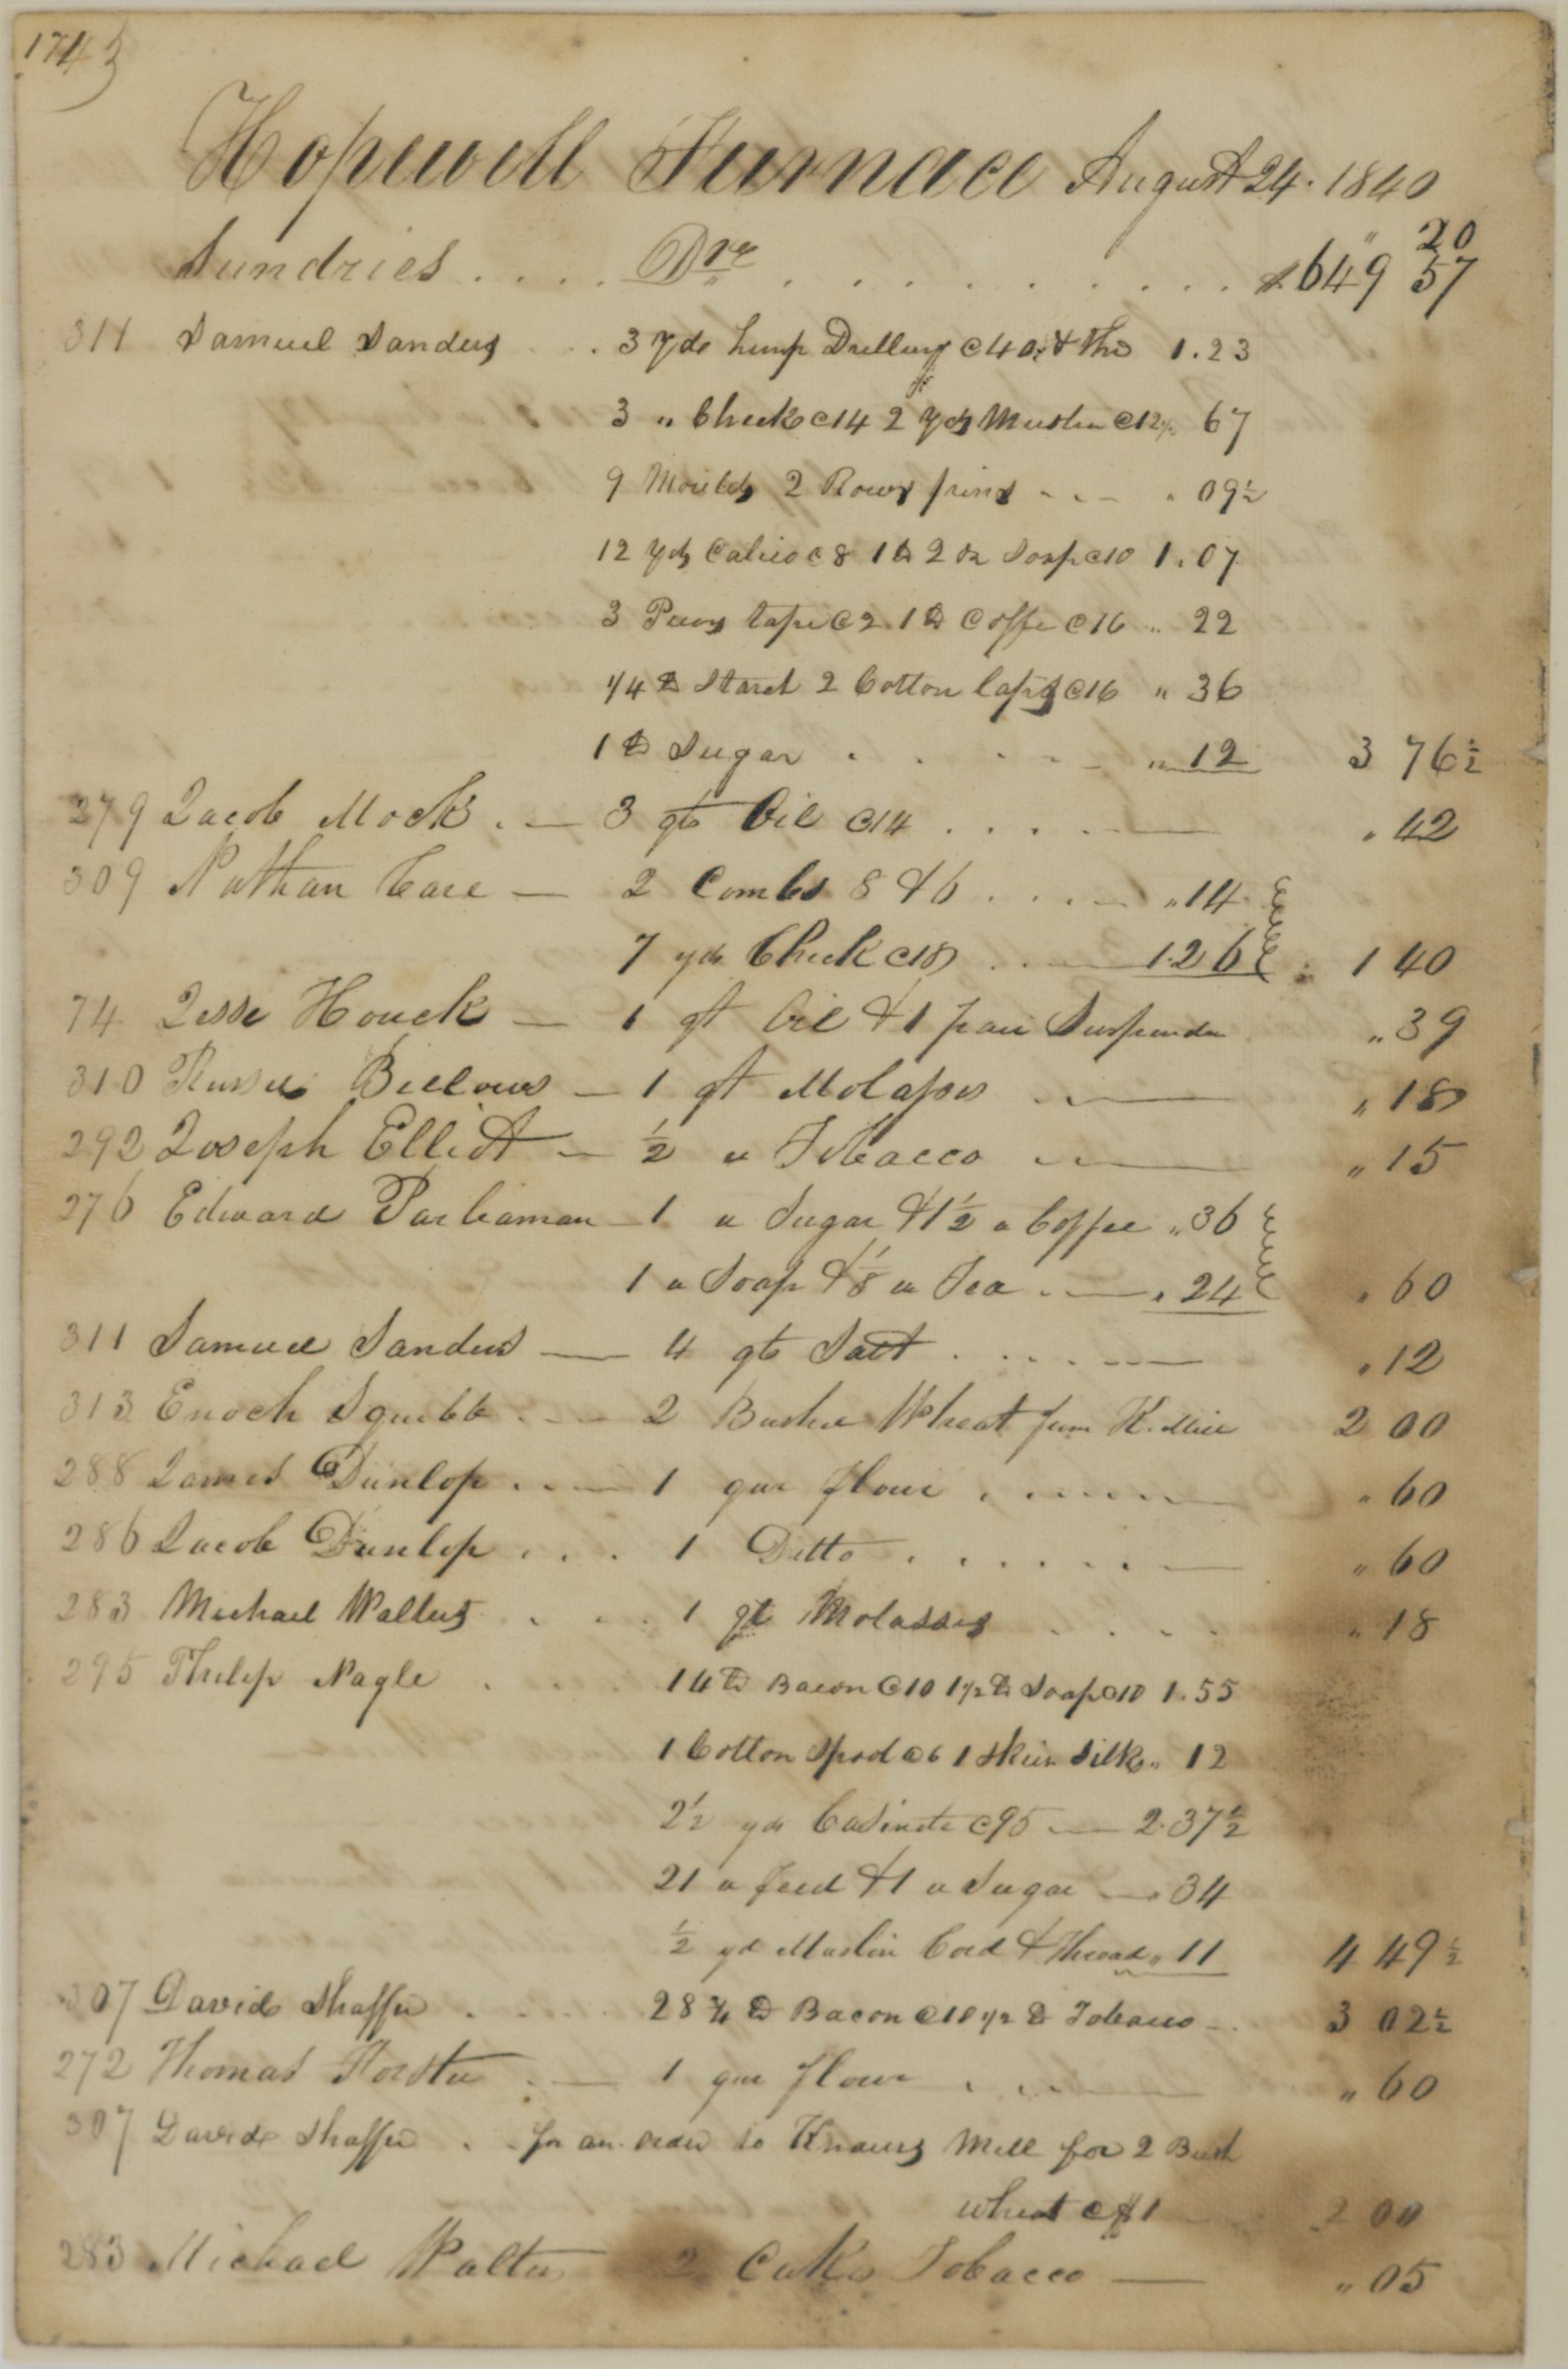 1743
Hopewell Furnace August 24. 1840
" 20
Sundries .... Drs ......... $649 57
311 Samuel Sanders .. 3 Yds hemp Drilling @40 & Thd 1.23
3 " Check @14 2 Yds Muslin @12½ 67
9 Moulds 2 Rows pins - - - " 09½
12 Yds Calico @8 1 lb 2 oz Soap @10 1.07
3 Pieces tape @2 1 lb Coffe @16 " 22
1/4 lb Starch 2 Cotton Caps @16 " 36
1 lb Sugar . . . - - " 12 3 76½
279 Jacob Mock . — 3 qts Oil @14 . . . . — " 42
309 Nathan Care — 2 Combs 8 & 6 . . . . — " 14
7 yds Check @18 . . . — 1.26 1 40
74 Jesse Houck — 1 qt Oil & 1 pair Suspender " 39
310 Billows — 1 qt Molasses . — " 18
292 Joseph Elliot — ½ " Tobacco . — " 15
276 Edward Parliaman — 1 " Sugar & 1½ " Coffee " 36
1 " Soap & ⅛ " Tea . — " 24 " 60
311 Samuel Sanders — 4 qts Salt . . . . — " 12
313 Enoch Squibb . — 2 Bushel Wheat from K. Mill 2 00
288 James Dunlop . . — 1 qur flour . . . . . . — " 60
286 Jacob Dunlop . . . 1 Ditto . . . . . . — " 60
283 Michael Walters . . . 1 qt Molasses . . . . " 18
295 Philip Nagle . . . 14 lb Bacon @10 1 1/2 lb Soap @10 1.55
1 Cotton Spool @6 1 Skein Silk " 12
2½ yds Casinete @95 — 2.37½
21 " feed & 1 " Sugar — " 34
½ yd Muslin Cord & Thread " 11 4 49½
307 David Shaffer . . . . 28 ¾ lb Bacon @10 1/2 lb Tobacco - . 3 02½
272 Thomas . — 1 qur flour . . . — " 60
307 David Shaffer . . for an order to Knauers Mill for 2 Bush
wheat @ $1 2 00
283 Michael Walter 2 Cakes Tobacco — " 05